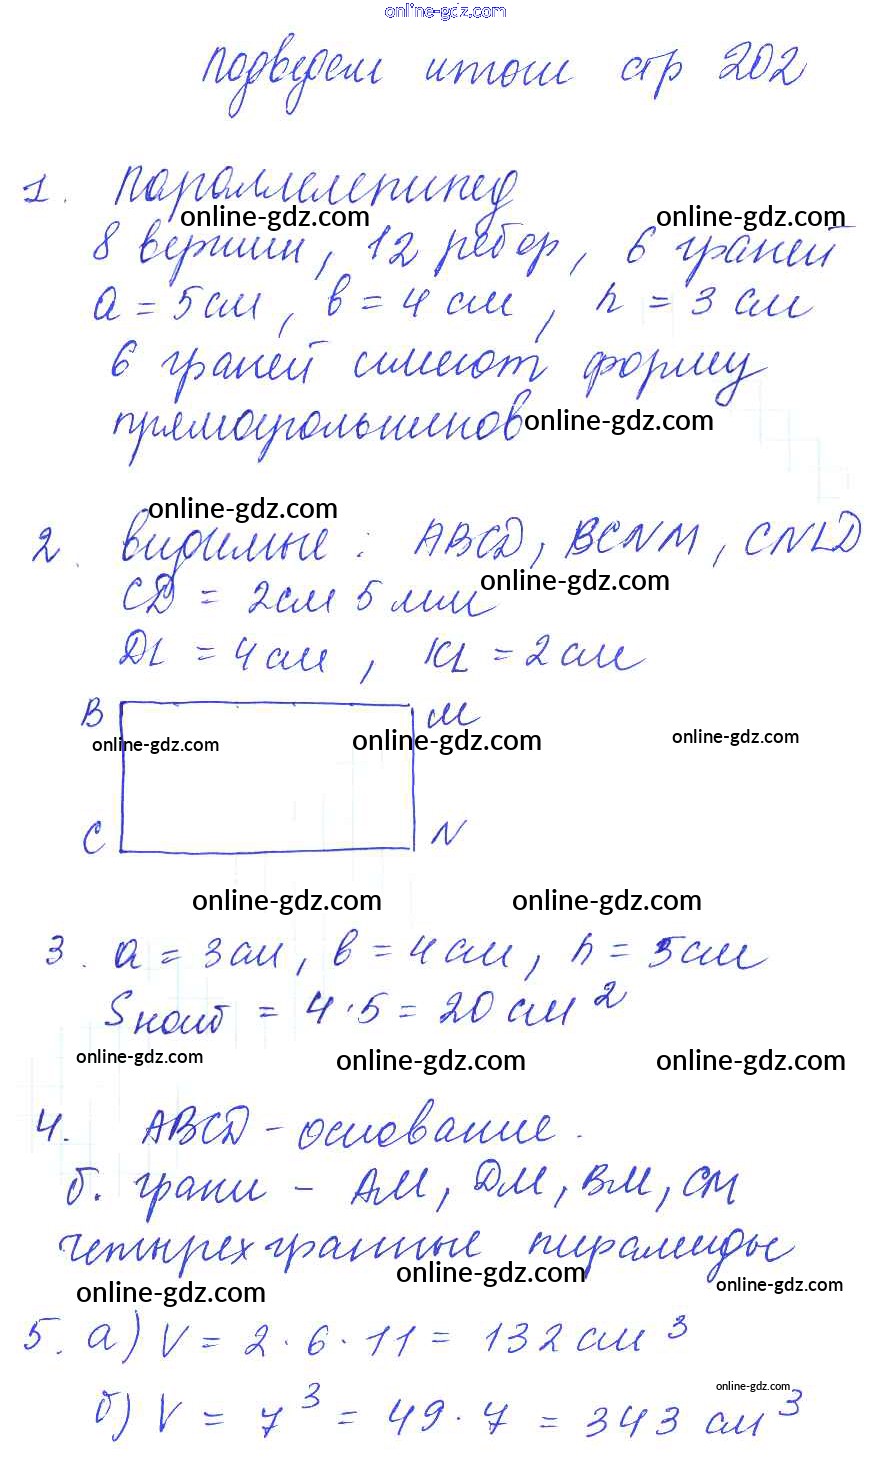 online-gdz.com
Подведем итоги стр 202
1. Параллелепипед
online-gdz.com online-gdz.com
8 вершин, 12 ребер, 6 граней
a = 5 см, b = 4 см, h = 3 см
6 граней имеют форму
прямоугольников
online-gdz.com
online-gdz.com
2. видимые: ABCD, BCNM, CNLD
online-gdz.com
CD = 2 см 5 мм
DL = 4 см, KL = 2 см
B M
online-gdz.com online-gdz.com online-gdz.com
C N
online-gdz.com online-gdz.com
3. a = 3 см, b = 4 см, h = 5 см
Sнаиб = 4·5 = 20 см²
online-gdz.com online-gdz.com online-gdz.com
4. ABCD – основание.
б. грани – AM, DM, BM, CM
четырехгранные пирамиды
online-gdz.com online-gdz.com online-gdz.com
5. а) V = 2·6·11 = 132 см³
online-gdz.com
б) V = 7³ = 49·7 = 343 см³